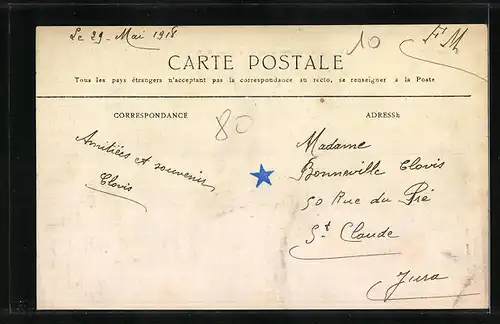 Le 29 Mai 1918
10
F M
CARTE POSTALE
Tous les pays étrangers n'acceptant pas la correspondance au recto, se renseigner à la Poste
CORRESPONDANCE
80
Amitiées et souvenir
Clovis
ADRESSE
Madame
Bonneville Clovis
50 Rue du Pré
St Claude
Jura